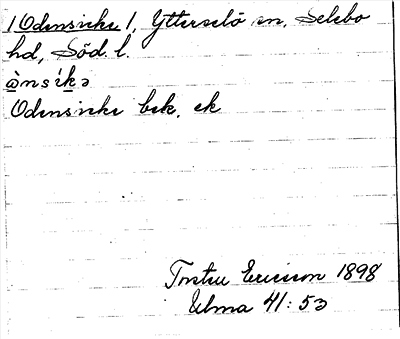 /Odensvike/, Ytterselö sn, Selebo
hd, Söd. l.
ònsikə
Odensvike bek. ek
Torsten Ericsson 1898
Ulma 41:53